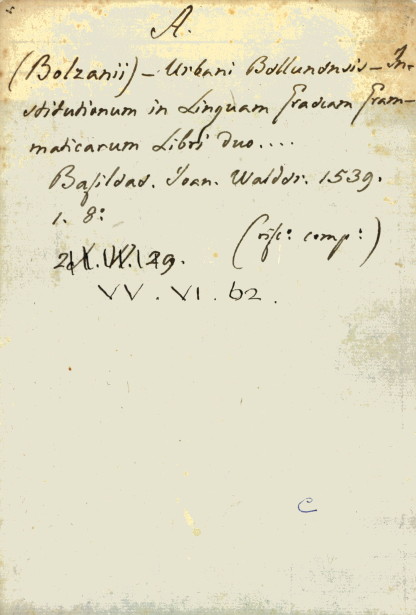 A.
(Bolzanii) – Urbani Bellunensis – In-
stitutionum in Linguam Graecam Gram-
maticarum Libri duo....
Basileae. Ioan. Walder. 1539.
1. 8:
(rise: comp:)
VV. VI. 62.
C